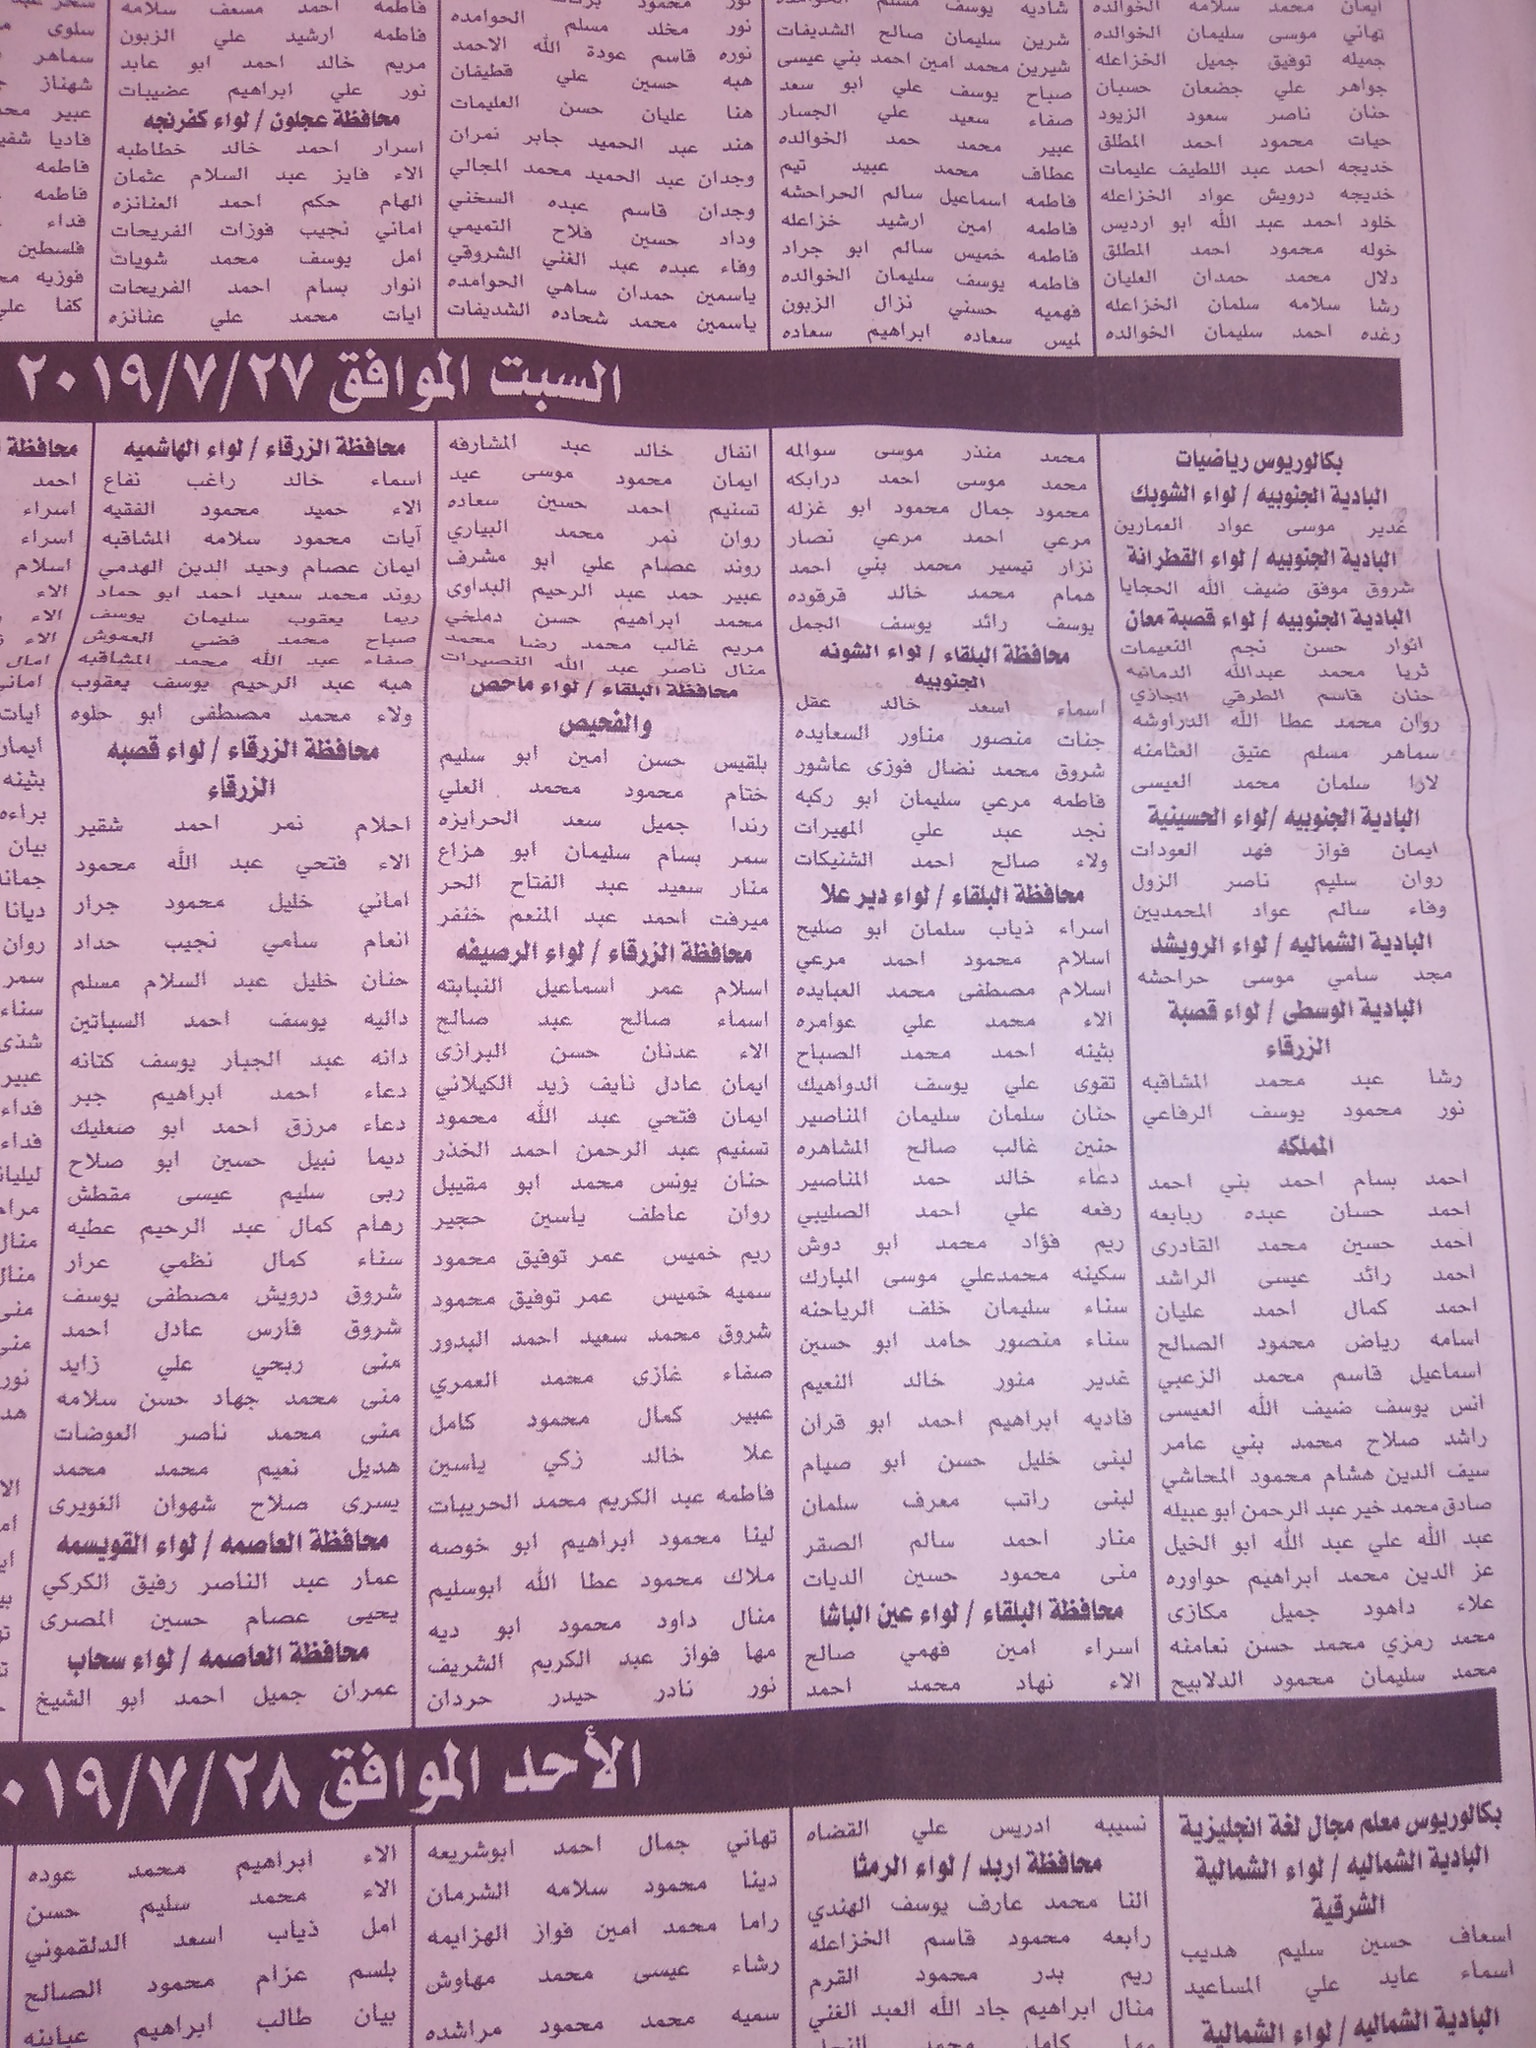 ايمان محمد سلامه الخوالده
تهاني موسى سليمان الخوالده
جميله توفيق جميل الخزاعله
جواهر علي جضعان حسبان
حنان ناصر سعود الزيود
حيات محمود احمد المطلق
خديجه احمد عبد اللطيف عليمات
خديجه درويش عواد الخزاعله
خلود احمد عبد الله ابو ارديس
خوله محمود احمد المطلق
دلال محمد حمدان العليان
رشا سلامه سلمان الخزاعله
رغده احمد سليمان الخوالده
شاديه يوسف مسلم الخوالده
شرين سليمان صالح الشديفات
شيرين محمد امين احمد بني عيسى
صباح يوسف علي ابو سعد
صفاء سعيد علي الجسار
عبير محمد حمد الخوالده
عطاف محمد عبيد تيم
فاطمه اسماعيل سالم الحراحشه
فاطمه امين ارشيد خزاعله
فاطمه خميس سالم ابو جراد
فاطمه يوسف سليمان الخوالده
فهميه حسني نزال الزبون
لميس سعاده ابراهيم سعاده
نور محمود
نور مخلد مسلم الحوامده
نوره قاسم عودة الله الاحمد
هبه حسين علي قطيفان
هنا عليان حسن العليمات
هند عبد الحميد جابر نمران
وجدان عبد الحميد محمد المجالي
وجدان قاسم عبده السخني
وداد حسين فلاح التميمي
وفاء عبده عبد الغني الشروقي
ياسمين حمدان ساهي الحوامده
ياسمين محمد شحاده الشديفات
فاطمه احمد مسعف سلامه
فاطمه ارشيد علي الزبون
مريم خالد احمد ابو عابد
نور علي ابراهيم عضيبات
محافظة عجلون / لواء كفرنجه
اسرار احمد خالد خطاطبه
الاء فايز عبد السلام عثمان
الهام حكم احمد العنانزه
اماني نجيب فوزات الفريحات
امل يوسف محمد شويات
انوار بسام احمد الفريحات
ايات محمد علي عنانزه
سلوى
سماهر
شهناز
عبير
فاديا
فاطمه
فاطمه
فداء
فلسطين
فوزيه
كفا علي
السبت الموافق ٢٠١٩/٧/٢٧
بكالوريوس رياضيات
البادية الجنوبيه / لواء الشوبك
غدير موسى عواد العمارين
البادية الجنوبيه / لواء القطرانة
شروق موفق ضيف الله الحجايا
البادية الجنوبيه / لواء قصبة معان
انوار حسن نجم النعيمات
ثريا محمد عبدالله الدمانيه
حنان قاسم الطرقي الجاذي
روان محمد عطا الله الدراوشه
سماهر مسلم عتيق العثامنه
لارا سلمان محمد العيسى
البادية الجنوبيه /لواء الحسينية
ايمان فواز فهد العودات
روان سليم ناصر الزول
وفاء سالم عواد المحمديين
البادية الشماليه / لواء الرويشد
مجد سامي موسى حراحشه
البادية الوسطى / لواء قصبة
الزرقاء
رشا عبد محمد المشاقبه
نور محمود يوسف الرفاعي
المملكه
احمد بسام احمد بني احمد
احمد حسان عبده ربابعه
احمد حسين محمد القادرى
احمد رائد عيسى الراشد
احمد كمال احمد عليان
اسامه رياض محمود الصالح
اسماعيل قاسم محمد الزعبي
انس يوسف ضيف الله العيسى
راشد صلاح محمد بني عامر
سيف الدين هشام محمود المحاشي
صادق محمد خير عبد الرحمن ابو عبيله
عبد الله علي عبد الله ابو الخيل
عز الدين محمد ابراهيم حواوره
علاء داهود جميل مكازى
محمد رمزي محمد حسن نعامنه
محمد سليمان محمود الدلابيح
محمد منذر موسى سوالمه
محمد موسى احمد درابكه
محمود جمال محمود ابو غزله
مرعي احمد مرعي نصار
نزار تيسير محمد بني احمد
همام محمد خالد قرقوده
يوسف رائد يوسف الجمل
محافظة البلقاء / لواء الشونه
الجنوبيه
اسماء اسعد خالد عقل
جنات منصور مناور السعايده
شروق محمد نضال فوزى عاشور
فاطمه مرعي سليمان ابو ركبه
نجد عبد علي المهيرات
ولاء صالح احمد الشنيكات
محافظة البلقاء / لواء دير علا
اسراء ذياب سلمان ابو صليح
اسلام محمود احمد مرعي
اسلام مصطفى محمد العبايده
الاء محمد علي عوامره
بثينه احمد محمد الصباح
تقوى علي يوسف الدواهيك
حنان سلمان سليمان المناصير
حنين غالب صالح المشاهره
دعاء خالد حمد المناصير
رفعه علي احمد الصليبي
ريم فؤاد محمد ابو دوش
سكينه محمدعلي موسى المبارك
سناء سليمان خلف الرياحنه
سناء منصور حامد ابو حسين
غدير منور خالد النعيم
فاديه ابراهيم احمد ابو قران
لبنى خليل حسن ابو صيام
لبنى راتب معرف سلمان
منار احمد سالم الصقر
منى محمود حسين الديات
محافظة البلقاء / لواء عين الباشا
اسراء امين فهمي صالح
الاء نهاد محمد احمد
انفال خالد عبد المشارفه
ايمان محمود موسى عيد
تسنيم احمد حسين سعاده
روان نمر محمد البياري
روند عصام علي ابو مشرف
عبير حمد عبد الرحيم البداوى
محمد ابراهيم حسن دملخي
مريم غالب محمد رضا محمد
منال ناصر عبد الله النصيرات
محافظة البلقاء / لواء ماحص
والفحيص
بلقيس حسن امين ابو سليم
ختام محمود محمد العلي
رندا جميل سعد الحرايزه
سمر بسام سليمان ابو هزاع
منار سعيد عبد الفتاح الحر
ميرفت احمد عبد المنعم خنفر
محافظة الزرقاء / لواء الرصيفه
اسلام عمر اسماعيل النبابته
اسماء صالح عبد صالح
الاء عدنان حسن البرازى
ايمان عادل نايف زيد الكيلاني
ايمان فتحي عبد الله محمود
تسنيم عبد الرحمن احمد الخذر
حنان يونس محمد ابو مقيبل
روان عاطف ياسين حجير
ريم خميس عمر توفيق محمود
سميه خميس عمر توفيق محمود
شروق محمد سعيد احمد البدور
صفاء غازى محمد العمري
عبير كمال محمود كامل
علا خالد زكي ياسين
فاطمه عبد الكريم محمد الحريبات
لينا محمود ابراهيم ابو خوصه
ملاك محمود عطا الله ابوسليم
منال داود محمود ابو ديه
مها فواز عبد الكريم الشريف
نور نادر حيدر حردان
محافظة الزرقاء / لواء الهاشميه
اسماء خالد راغب نفاع
الاء حميد محمود الفقيه
آيات محمود سلامه المشاقبه
ايمان عصام وحيد الدين الهدمي
روند محمد سعيد احمد ابو حماد
ريما يعقوب سليمان يوسف
صباح محمد فضي العموش
صفاء عبد الله محمد المشاقبه
هبه عبد الرحيم يوسف يعقوب
ولاء محمد مصطفى ابو حلوه
محافظة الزرقاء / لواء قصبه
الزرقاء
احلام نمر احمد شقير
الاء فتحي عبد الله محمود
اماني خليل محمود جرار
انعام سامي نجيب حداد
حنان خليل عبد السلام مسلم
داليه يوسف احمد السباتين
دانه عبد الجبار يوسف كتانه
دعاء احمد ابراهيم جبر
دعاء مرزق احمد ابو صعليك
ديما نبيل حسين ابو صلاح
ربى سليم عيسى مقطش
رهام كمال عبد الرحيم عطيه
سناء كمال نظمي عرار
شروق درويش مصطفى يوسف
شروق فارس عادل احمد
منى ربحي علي زايد
منى محمد جهاد حسن سلامه
منى محمد ناصر العوضات
هديل نعيم محمد محمد
يسرى صلاح شهوان الغويرى
محافظة العاصمه / لواء القويسمه
عمار عبد الناصر رفيق الكركي
يحيى عصام حسين المصرى
محافظة العاصمه / لواء سحاب
عمران جميل احمد ابو الشيخ
محافظة
احمد
اسراء
اسراء
اسلام
الاء
الاء
الاء
امال
اماني
ايات
ايمان
بثينه
براءه
بيان
جمانه
ديانا
روان
سمر
سناء
شذى
عبير
فداء
فداء
مرام
منال
منال
منى
منى
نور
الأحد الموافق ٢٠١٩/٧/٢٨
بكالوريوس معلم مجال لغة انجليزية
البادية الشماليه / لواء الشمالية
الشرقية
اسعاف حسين سليم هديب
اسماء عايد علي المساعيد
البادية الشماليه / لواء الشمالية
نسيبه ادريس علي القضاه
محافظة اربد / لواء الرمثا
النا محمد عارف يوسف الهندي
رابعه محمود قاسم الخزاعله
ريم بدر محمود القرم
منال ابراهيم جاد الله العبد الغني
مها كامل محمد
تهاني جمال احمد ابوشريعه
دينا محمود سلامه الشرمان
راما محمد امين فواز الهزايمه
رشاء عيسى محمد مهاوش
سميه محمد محمود مراشده
الاء ابراهيم محمد عوده
الاء محمد سليم حسن
امل ذياب اسعد الدلقموني
بلسم عزام محمود الصالح
بيان طالب ابراهيم عبابنه